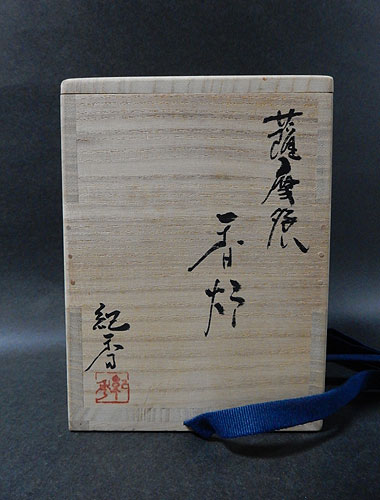 薩摩
香炉
紀香